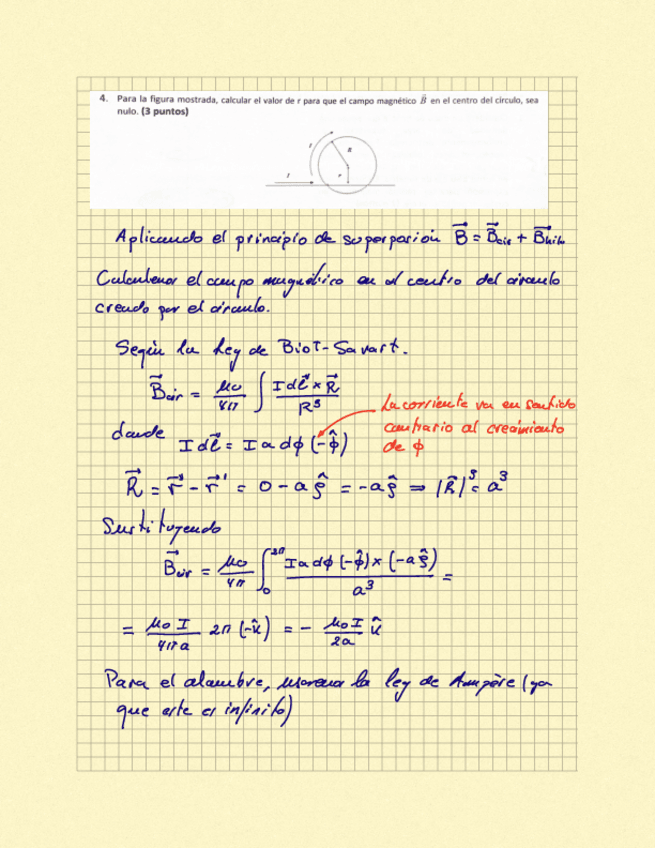 4. Para la figura mostrada, calcular el valor de r para que el campo magnético B⃗ en el centro del círculo, sea
nulo. (3 puntos)
I
R
I
r
Aplicando el principio de superposición B⃗ = B⃗cir + B⃗hilo
Calculemos el campo magnético en el centro del círculo
creado por el círculo.
Según la ley de Biot-Savart.
B⃗cir = μ₀/4π ∫ I dl⃗ × R⃗ / R³
La corriente va en sentido
contrario al crecimiento
de ϕ
donde I dl⃗ = I a dϕ (-ϕ̂)
R⃗ = r⃗ - r⃗' = 0 - a ρ̂ = -a ρ̂ ⇒ |R⃗|³ = a³
Sustituyendo
B⃗cir = μ₀/4π ∫₀²π I a dϕ (-ϕ̂) × (-a ρ̂) / a³ =
= μ₀ I / 4πa 2π (-k̂) = - μ₀ I / 2a k̂
Para el alambre, usaremos la ley de Ampère (ya
que este es infinito)